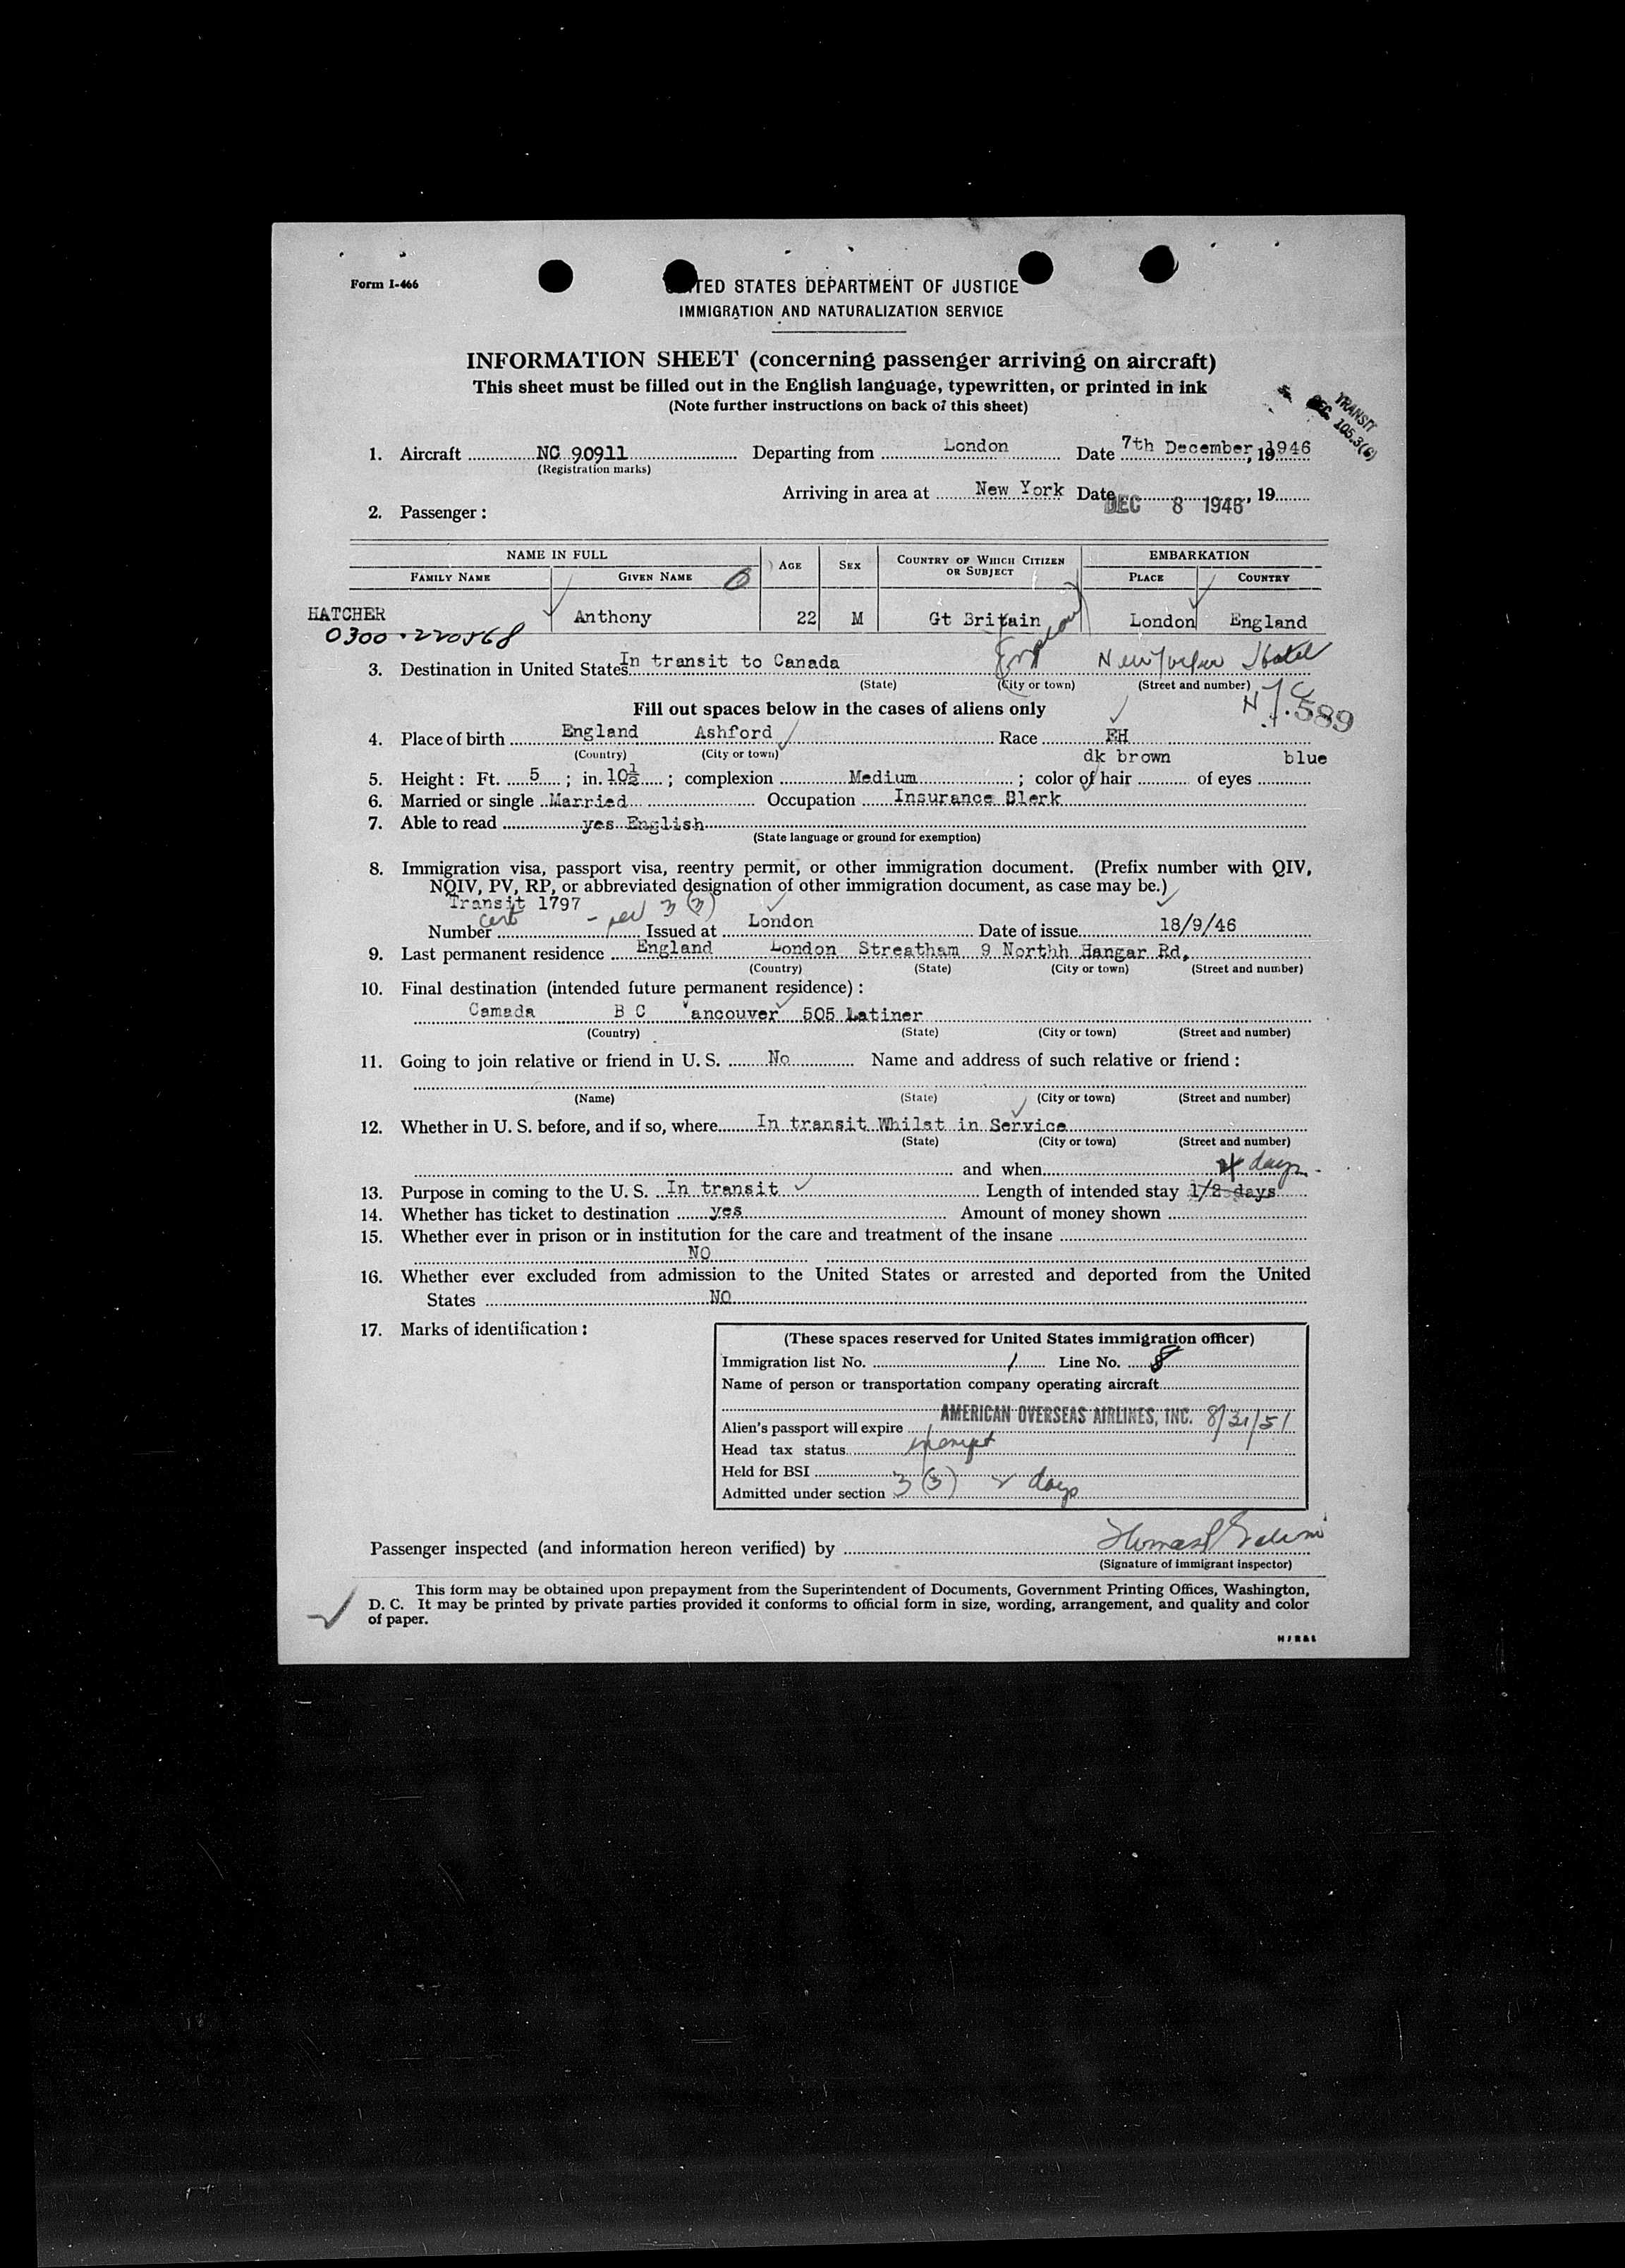 Form I-466
UNITED STATES DEPARTMENT OF JUSTICE
IMMIGRATION AND NATURALIZATION SERVICE
INFORMATION SHEET (concerning passenger arriving on aircraft)
This sheet must be filled out in the English language, typewritten, or printed in ink
(Note further instructions on back of this sheet)
TRANSIT
SEC. 105.3(6)
1. Aircraft NC 90911 Departing from London Date 7th December, 19946
(Registration marks)
Arriving in area at New York Date DEC 8 1946, 19
2. Passenger:
NAME IN FULL AGE SEX COUNTRY OF WHICH CITIZEN OR SUBJECT EMBARKATION
FAMILY NAME GIVEN NAME PLACE COUNTRY
HATCHER Anthony 22 M Gt Britain London England
0300.220568
3. Destination in United States In transit to Canada New Yorker Hotel
(State) (City or town) (Street and number)
N.Y.C. 589
Fill out spaces below in the cases of aliens only
4. Place of birth England Ashford Race EH
(Country) (City or town) dk brown blue
5. Height: Ft. 5; in. 10½; complexion Medium; color of hair of eyes
6. Married or single Married Occupation Insurance Clerk
7. Able to read yes English
(State language or ground for exemption)
8. Immigration visa, passport visa, reentry permit, or other immigration document. (Prefix number with QIV,
NQIV, PV, RP, or abbreviated designation of other immigration document, as case may be.)
Transit 1797
Number cert - per 3 (3) Issued at London Date of issue 18/9/46
9. Last permanent residence England London Streatham 9 Northh Hangar Rd,
(Country) (State) (City or town) (Street and number)
10. Final destination (intended future permanent residence):
Camada B C Vancouver 505 Latiner
(Country) (State) (City or town) (Street and number)
11. Going to join relative or friend in U. S. No Name and address of such relative or friend:
(Name) (State) (City or town) (Street and number)
12. Whether in U. S. before, and if so, where In transit Whilst in Service
(State) (City or town) (Street and number)
and when days
13. Purpose in coming to the U. S. In transit Length of intended stay 1/2 days
14. Whether has ticket to destination yes Amount of money shown
15. Whether ever in prison or in institution for the care and treatment of the insane
NO
16. Whether ever excluded from admission to the United States or arrested and deported from the United
States NO
17. Marks of identification:
(These spaces reserved for United States immigration officer)
Immigration list No. 1 Line No. 8
Name of person or transportation company operating aircraft
AMERICAN OVERSEAS AIRLINES, INC.
Alien's passport will expire 8/31/51
Head tax status exempt
Held for BSI
Admitted under section 3 (3) 2 days
Passenger inspected (and information hereon verified) by
(Signature of immigrant inspector)
This form may be obtained upon prepayment from the Superintendent of Documents, Government Printing Offices, Washington,
D. C. It may be printed by private parties provided it conforms to official form in size, wording, arrangement, and quality and color
of paper.